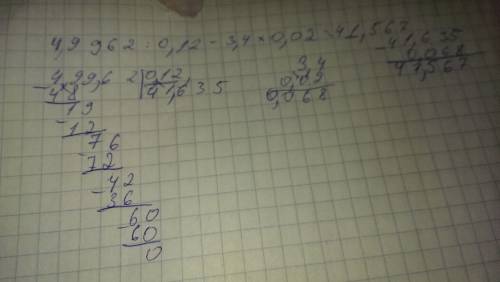 4,9962 : 0,12 - 3,4 × 0,02 = 41,567
- 41,635
0,068
41,567
- 499,6 2 | 0,12
48 | 41,635
19
- 12
76
- 72
42
- 36
60
- 60
0
3,4
0,02
0,068